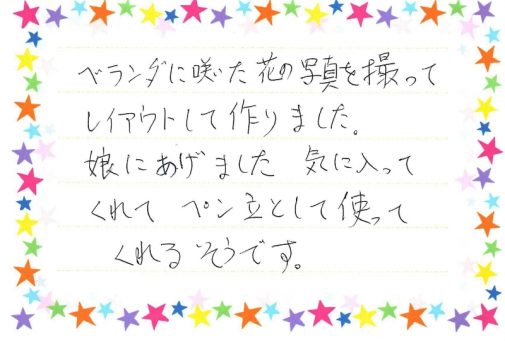 ベランダに咲いた花の写真を撮って
レイアウトして作りました。
娘にあげました 気に入って
くれて ペン立として使って
くれるそうです。